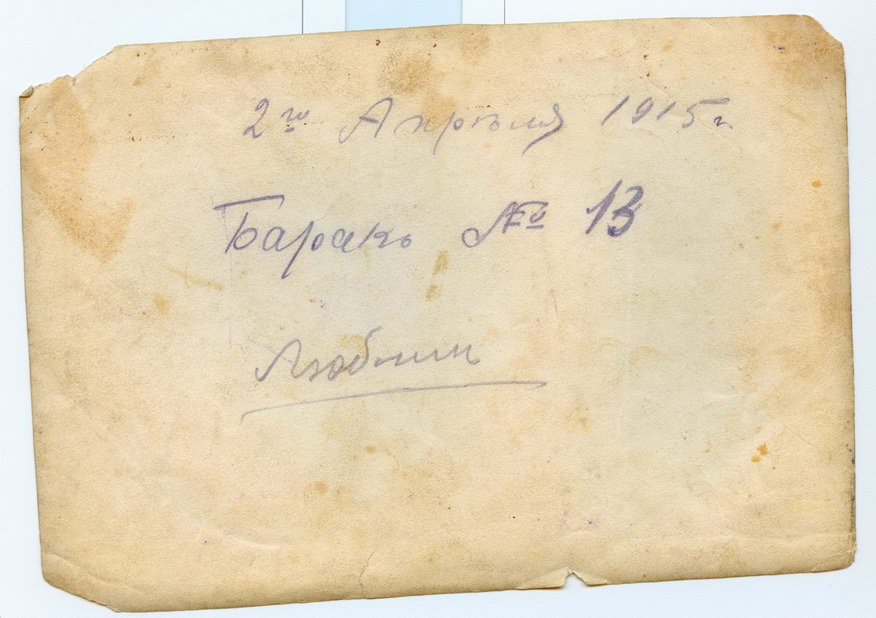 2го Апрѣля 1915г.
Баракъ № 13
Люблинъ